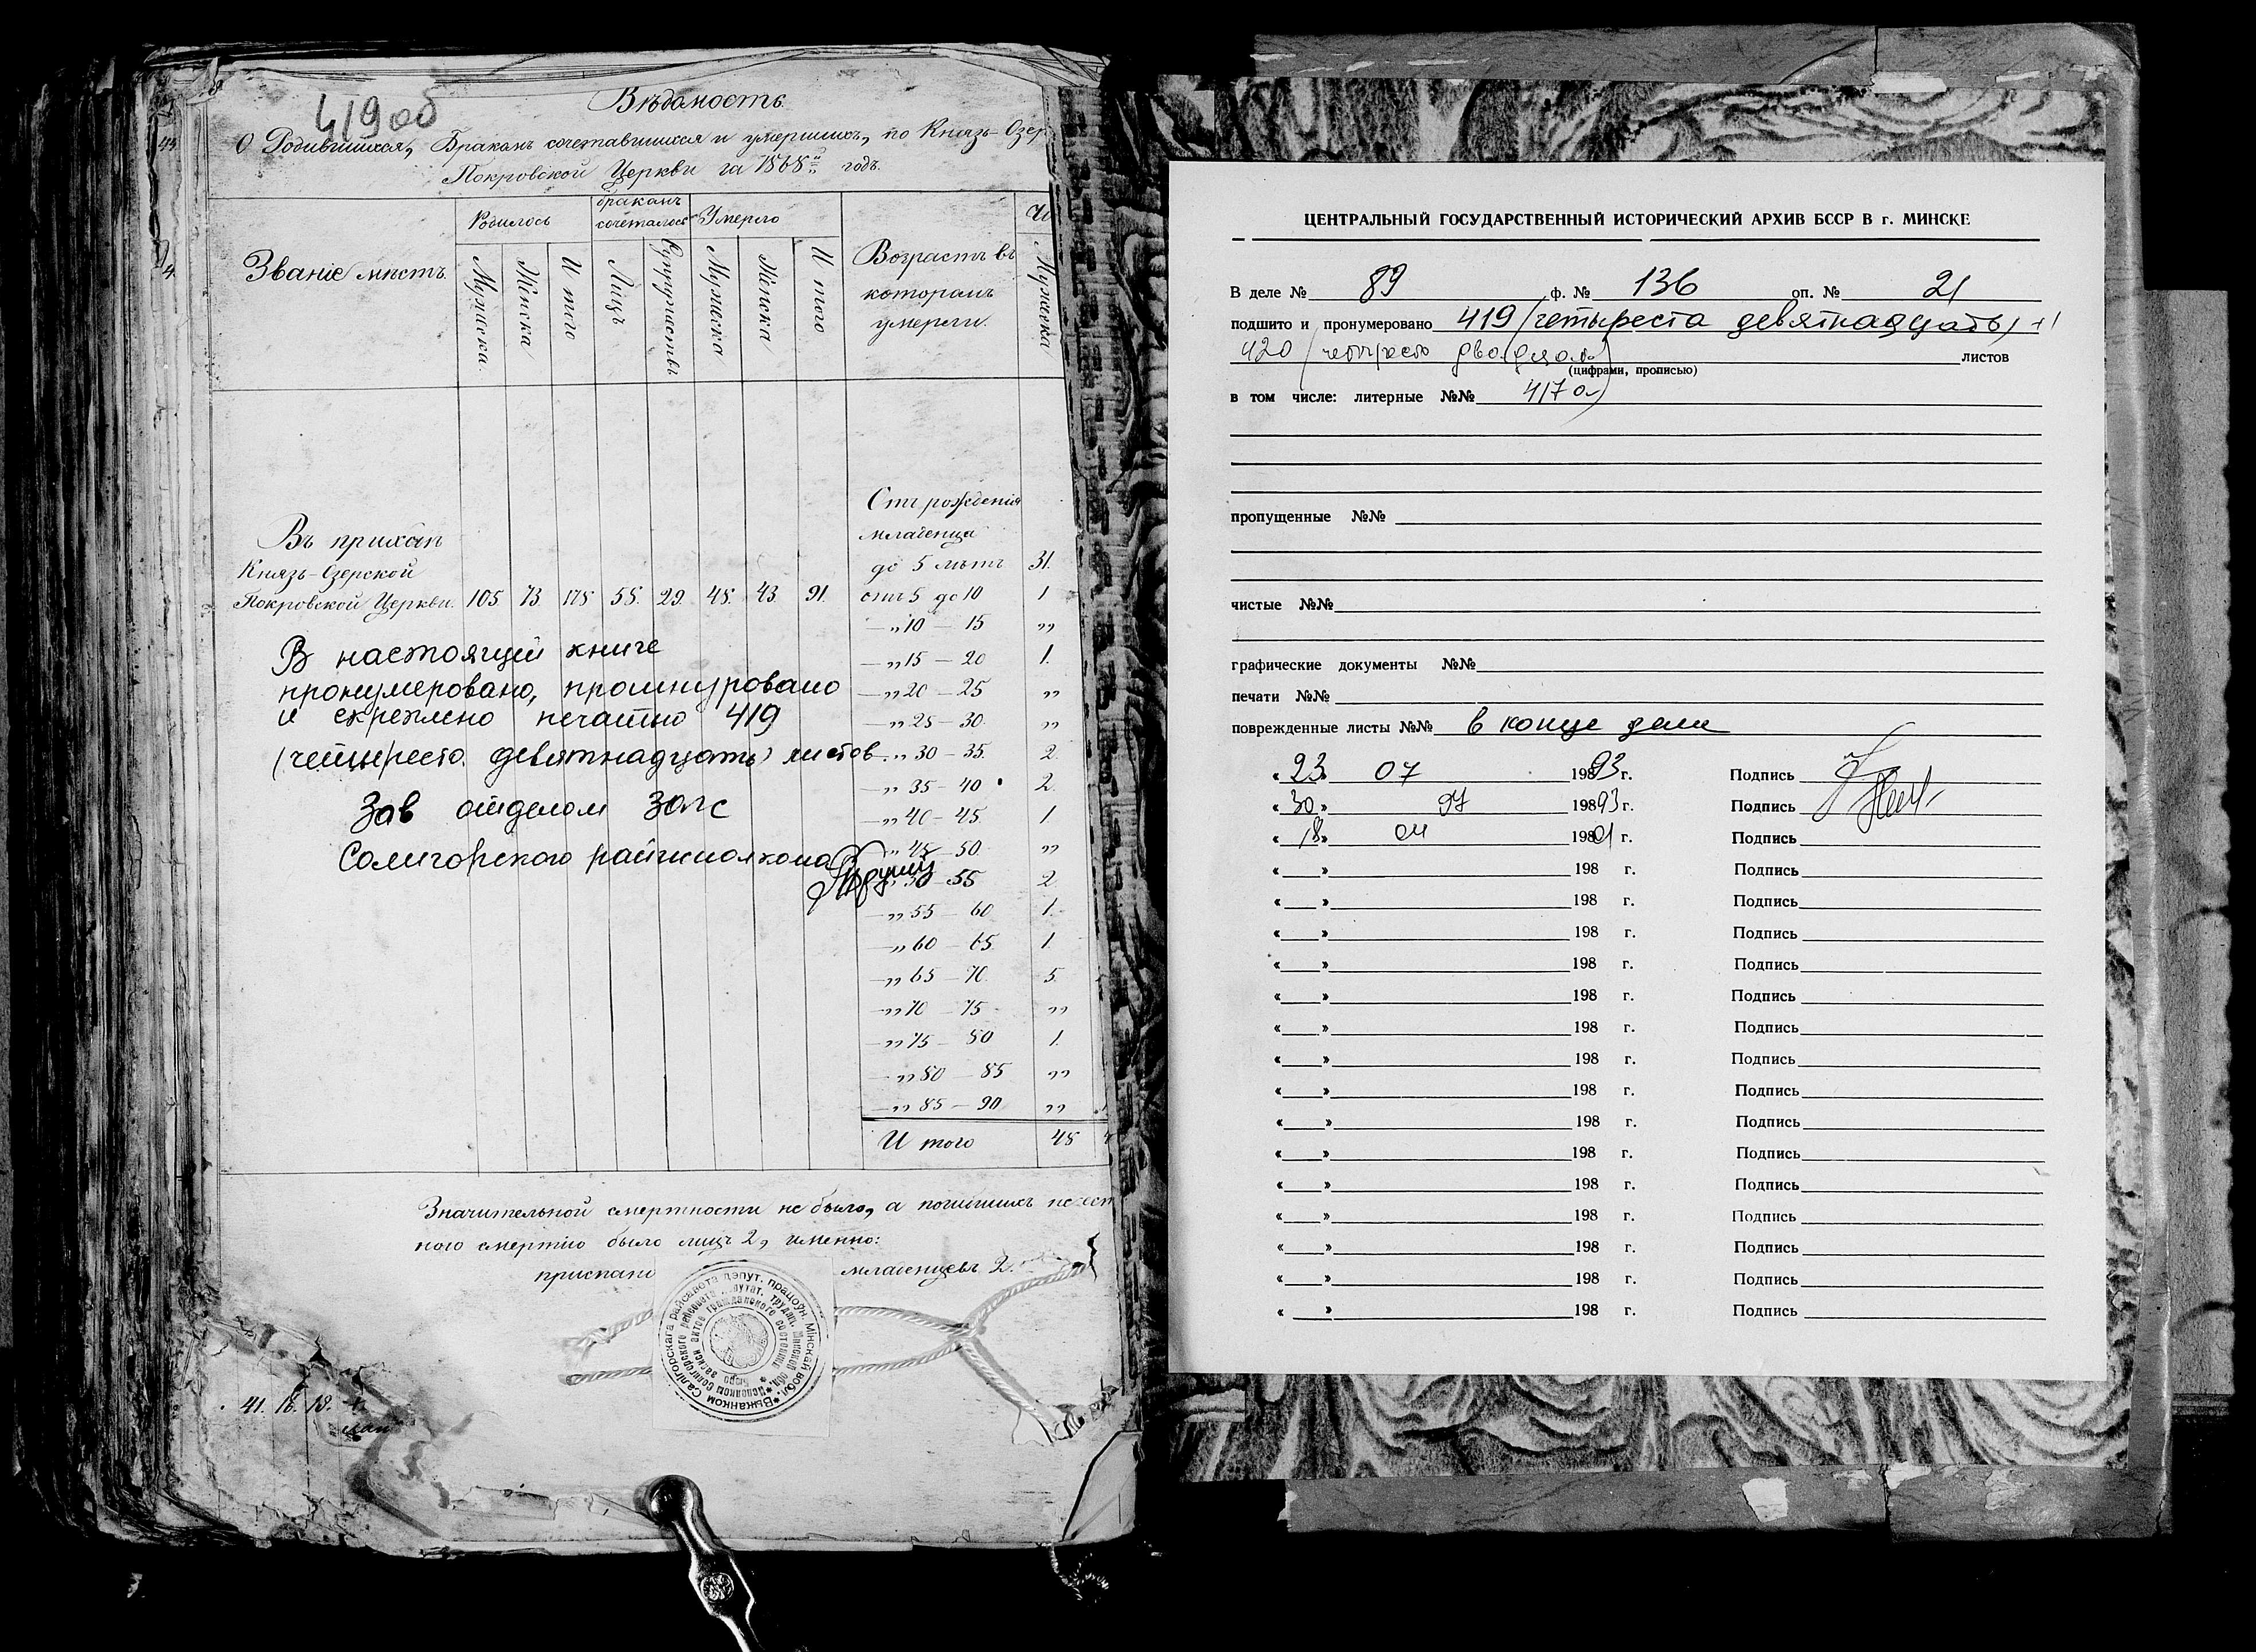 419 об
Вѣдомость
О Родившихся, Бракомъ сочетавшихся и умершихъ, по Князь-Озер
Покровской Церкви за 1868й годъ.
Званіе мѣстъ.
Родилось
бракомъ сочеталось
Умерло
Возрастъ въ которомъ умерли.
Мужеска.
Женска
И того
Лицъ
Супружествъ
Мужеска
Женска
И того
Мужеска
Въ приходѣ
Князь-Озерской
Покровской Церкви. 105. 73. 178 58. 29. 48. 43. 91.
Отъ рожденія
младенца
до 5 лѣтъ 31.
отъ 5 до 10 1
— „ 10 — 15 „
— „ 15 — 20 1.
— „ 20 — 25 „
— „ 25 — 30. „
— „ 30 — 35. 2.
— „ 35 — 40 2.
— „ 40 — 45. 1
„ 45 — 50. „
„ 50 — 55 2
— „ 55 — 60 1.
— „ 60 — 65. 1.
— „ 65 — 70. 5.
— „ 70 — 75 „
— „ 75 — 80 1.
— „ 80 — 85 „
— „ 85 — 90 „
И того 48
В настоящей книге
пронумеровано, прошнуровано
и скреплено печатью 419
(четыреста девятнадцать) листов
Зав отделом Загс
Солигорского райисполкома
Значительной смертности не было, а погибшихъ не ест
ною смертію было лицъ 2, именно:
приспано младенцевъ 2.
*Выканком Салігорскага райсавета дэпут. працоўн. Мінскай вобл.
*Исполком Солигорского райсовета депутат. трудящ. Минской обл.
* Бюро записи актов гражданского состояния
41. 16. 18.
ЦЕНТРАЛЬНЫЙ ГОСУДАРСТВЕННЫЙ ИСТОРИЧЕСКИЙ АРХИВ БССР В г. МИНСКЕ
В деле № 89 ф. № 136 оп. № 21
подшито и пронумеровано 419 (четыреста девятнадцать) +1
420 (четыреста двадцать) листов
(цифрами, прописью)
в том числе: литерные №№ 417а
пропущенные №№
чистые №№
графические документы №№
печати №№
поврежденные листы №№ в конце дела
« 23 » 07 19893 г. Подпись
« 30 » 07 19893 г. Подпись
« 18 » 04 19801 г. Подпись
« » 198 г. Подпись
« » 198 г. Подпись
« » 198 г. Подпись
« » 198 г. Подпись
« » 198 г. Подпись
« » 198 г. Подпись
« » 198 г. Подпись
« » 198 г. Подпись
« » 198 г. Подпись
« » 198 г. Подпись
« » 198 г. Подпись
« » 198 г. Подпись
« » 198 г. Подпись
« » 198 г. Подпись
« » 198 г. Подпись